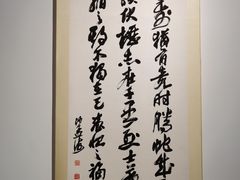 壽猶有竟時騰蛇乘
伏櫪志在千里烈士暮
縮之期不獨在天養怡之福
沙孟海